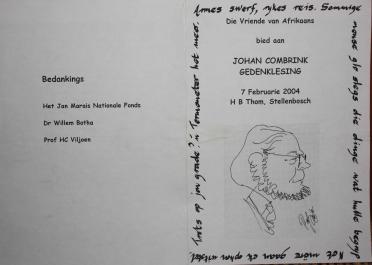 Bedankings
Het Jan Marais Nationale Fonds
Dr Willem Botha
Prof HC Viljoen
Armes swerf, rykes reis. Sommige
mense glo slegs die dinge wat hulle begryp
Net more gaan ek ophou
Trots op jou grade? 'n Termometer het meer.
Die Vriende van Afrikaans
bied aan
JOHAN COMBRINK
GEDENKLESING
7 Februarie 2004
H B Thom, Stellenbosch